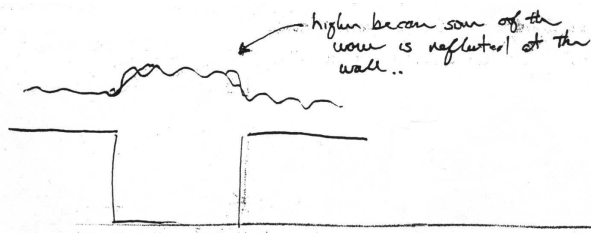 higher because some of the
wave is reflected at the
wall..